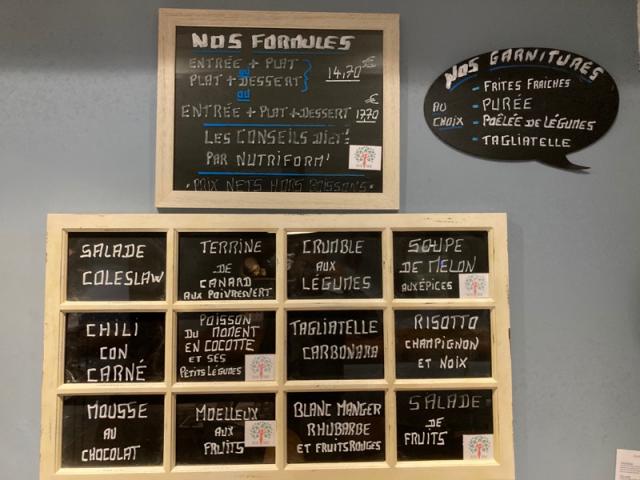 NOS FORMULES
ENTRÉE + PLAT
OU
PLAT + DESSERT
14,70 €
OU
ENTRÉE + PLAT + DESSERT 17,70 €
LES CONSEILS DIÉT'
PAR NUTRIFORM'
PRIX NETS HORS BOISSONS
NOS GARNITURES
AU CHOIX
- FRITES FRAÎCHES
- PURÉE
- POÊLÉE DE LÉGUMES
- TAGLIATELLE
SALADE
COLESLAW
TERRINE
DE
CANARD
AUX POIVRES VERT
CRUMBLE
AUX
LÉGUMES
SOUPE
DE MELON
AUX ÉPICES
CHILI
CON
CARNÉ
POISSON
DU MOMENT
EN COCOTTE
ET SES
PETITS LÉGUMES
TAGLIATELLE
CARBONARA
RISOTTO
CHAMPIGNON
ET NOIX
MOUSSE
AU
CHOCOLAT
MOELLEUX
AUX
FRUITS
BLANC MANGER
RHUBARBE
ET FRUITS ROUGES
SALADE
DE
FRUITS